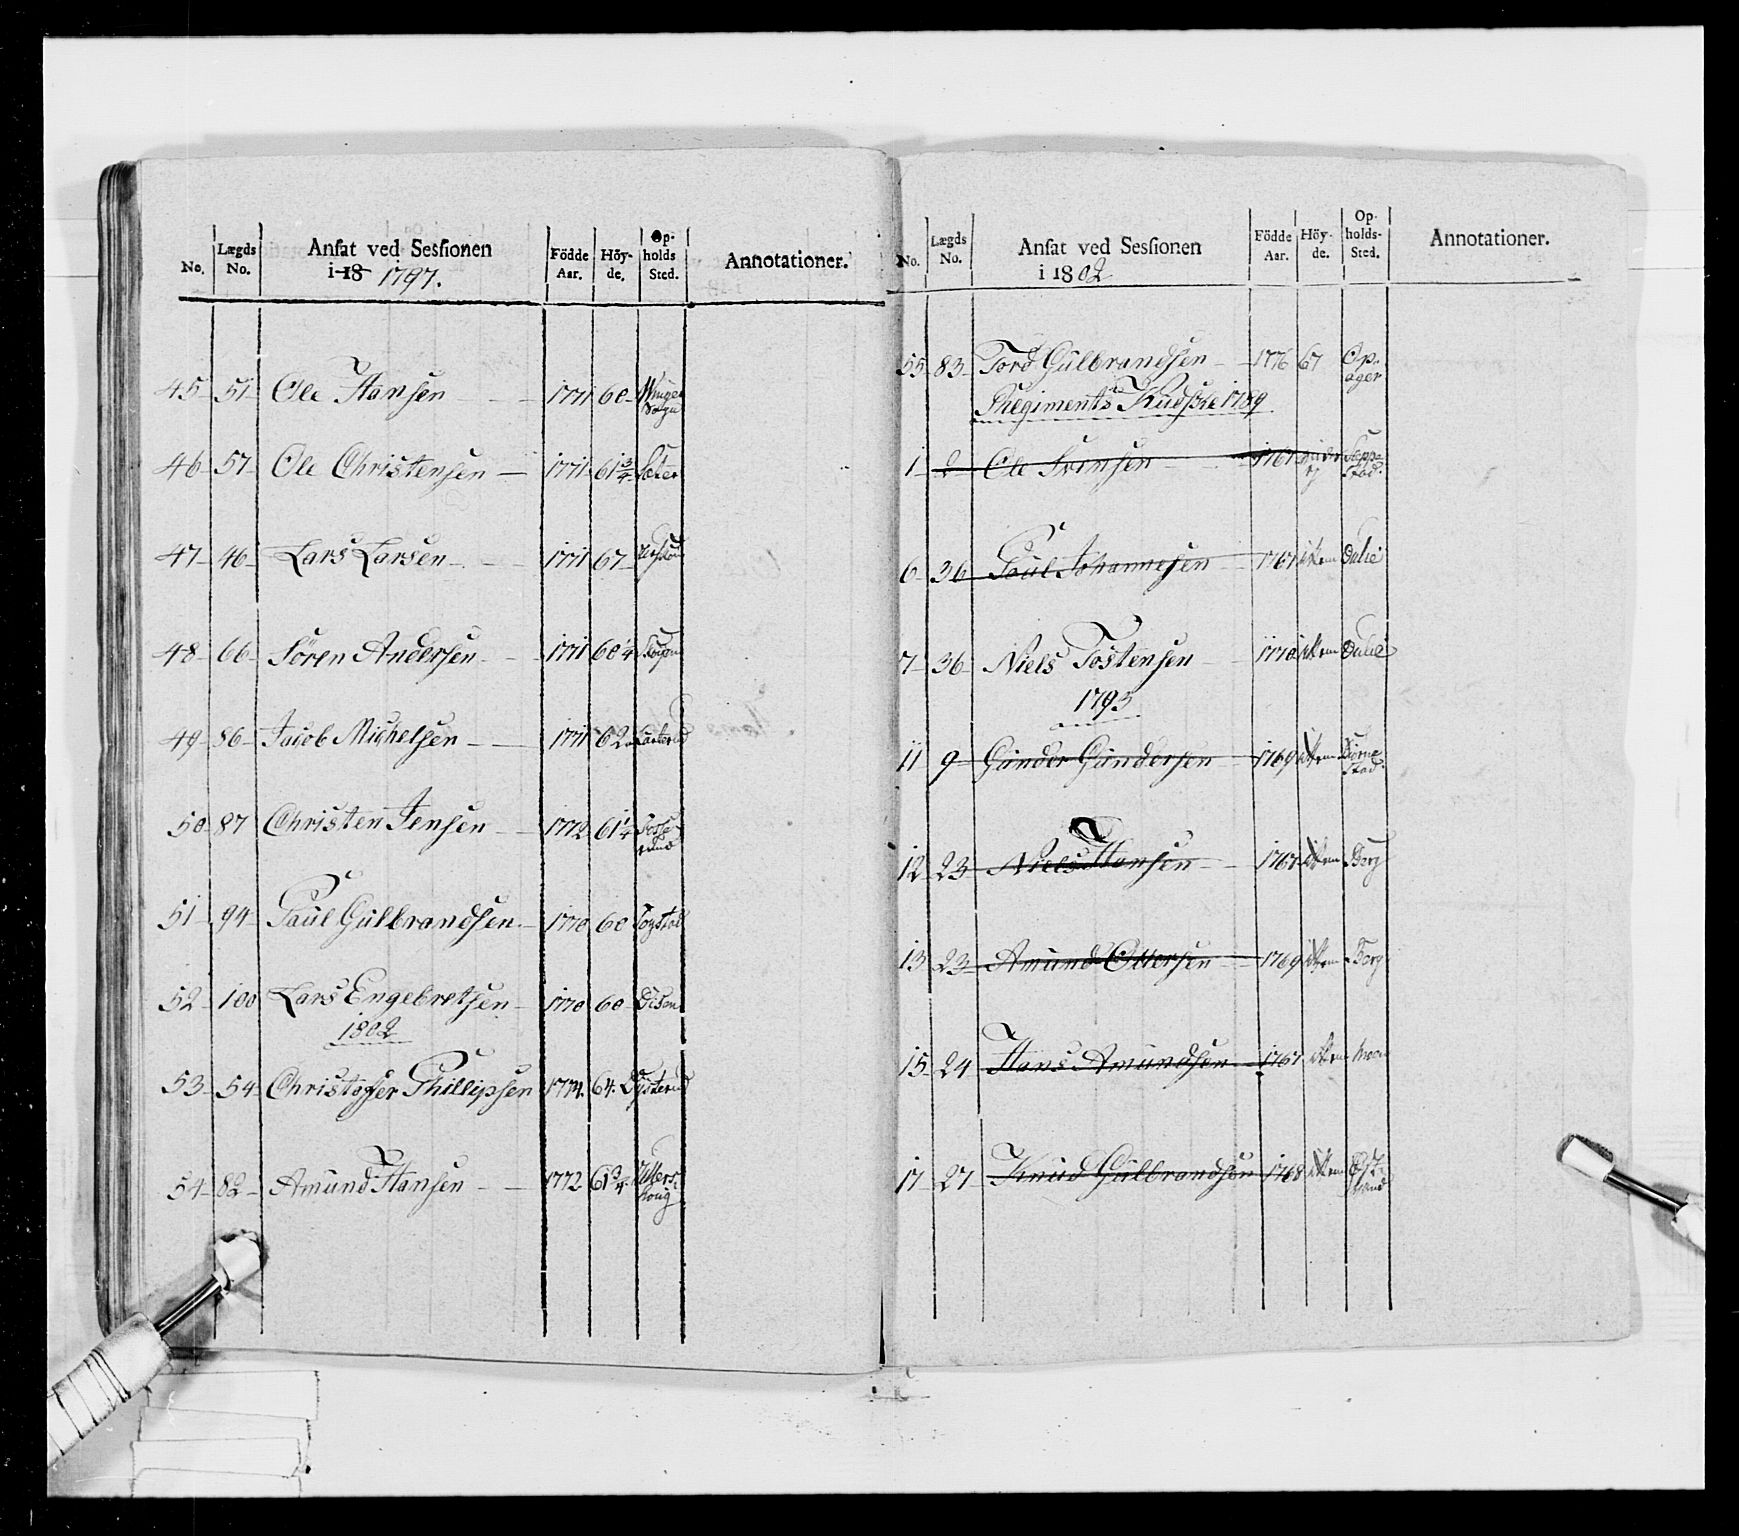 No. Lægds No. Ansat ved Sessionen i 18 1797. Födde Aar. Höyde. Opholds Sted. Annotationer.
45 51 Ole Hansen 1771 60
46 57 Ole Christensen 1771 61 3/4 Sæter
47 46 Lars Larsen 1771 67
48 66 Sören Andersen 1771 60 1/4
49 86 Jacob Michelsen 1771 62
50 87 Christen Jensen 1772 61 1/4
51 94 Paul Gulbrandsen 1770 60
52 100 Lars Engebretsen 1770 60 Disen
1802
53 54 Christoffer Phillipsen 1774 64
54 82 Amund Hansen 1772 61 3/4
No. Lægds No. Ansat ved Sessionen i 1802 Födde Aar. Höyde. Opholds Sted. Annotationer.
55 83 Tord Gulbrandsen 1776 67 Opager
Regiments Kudske 1789
1 2 Ole Svensen 1767
6 36 Paul Johannesen 1767 Dahle
7 36 Niels Tostensen 1770 Dahle
1793
11 9 Gunder Gundersen 1769 Biørnestad
12 23 Niels Hansen 1767 Berg
13 23 Amund Ottersen 1769 Berg
15 24 Hans Amundsen 1767 Moen
17 27 Knud Gulbrandsen 1768